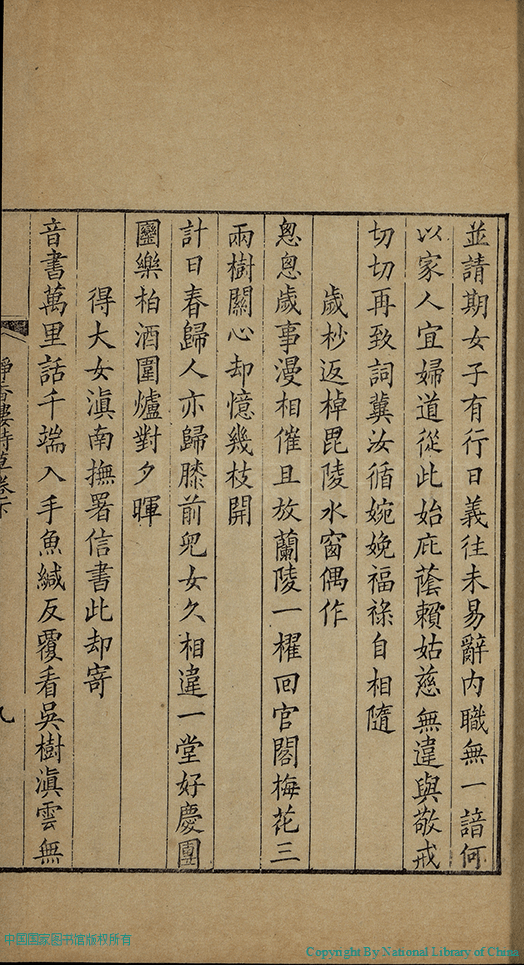 並請期女子有行日義往未易辭內職無一諳何
以家人宜婦道從此始庇蔭賴姑慈無違與敬戒
切切再致詞冀汝循婉娩福祿自相隨
歲杪返棹毘陵水窗偶作
怱怱歲事漫相催且放蘭陵一櫂回官閣梅花三
兩樹關心却憶幾枝開
計日春歸人亦歸膝前兒女久相違一堂好慶團
圞樂柏酒圍爐對夕暉
得大女滇南撫署信書此却寄
音書萬里話千端入手魚緘反覆看吳樹滇雲無
靜香樓詩草卷下
九
中国国家图书馆版权所有
Copyright By National Library of China